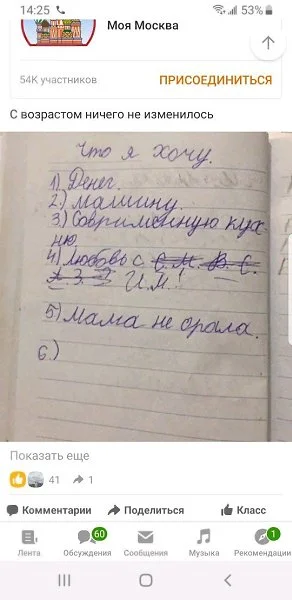 14:25 53%
Моя Москва
54K участников ПРИСОЕДИНИТЬСЯ
С возрастом ничего не изменилось
Что я хочу.
1) Денег.
2.) машину.
3.) Савременную кух-
ню
4) любовь с С. М. В. С.
А. З. ? И.М.!
5) мама не орала.
6.)
Показать еще
41 1
Комментарии Поделиться Класс
60 1
Лента Обсуждения Сообщения Музыка Рекомендации